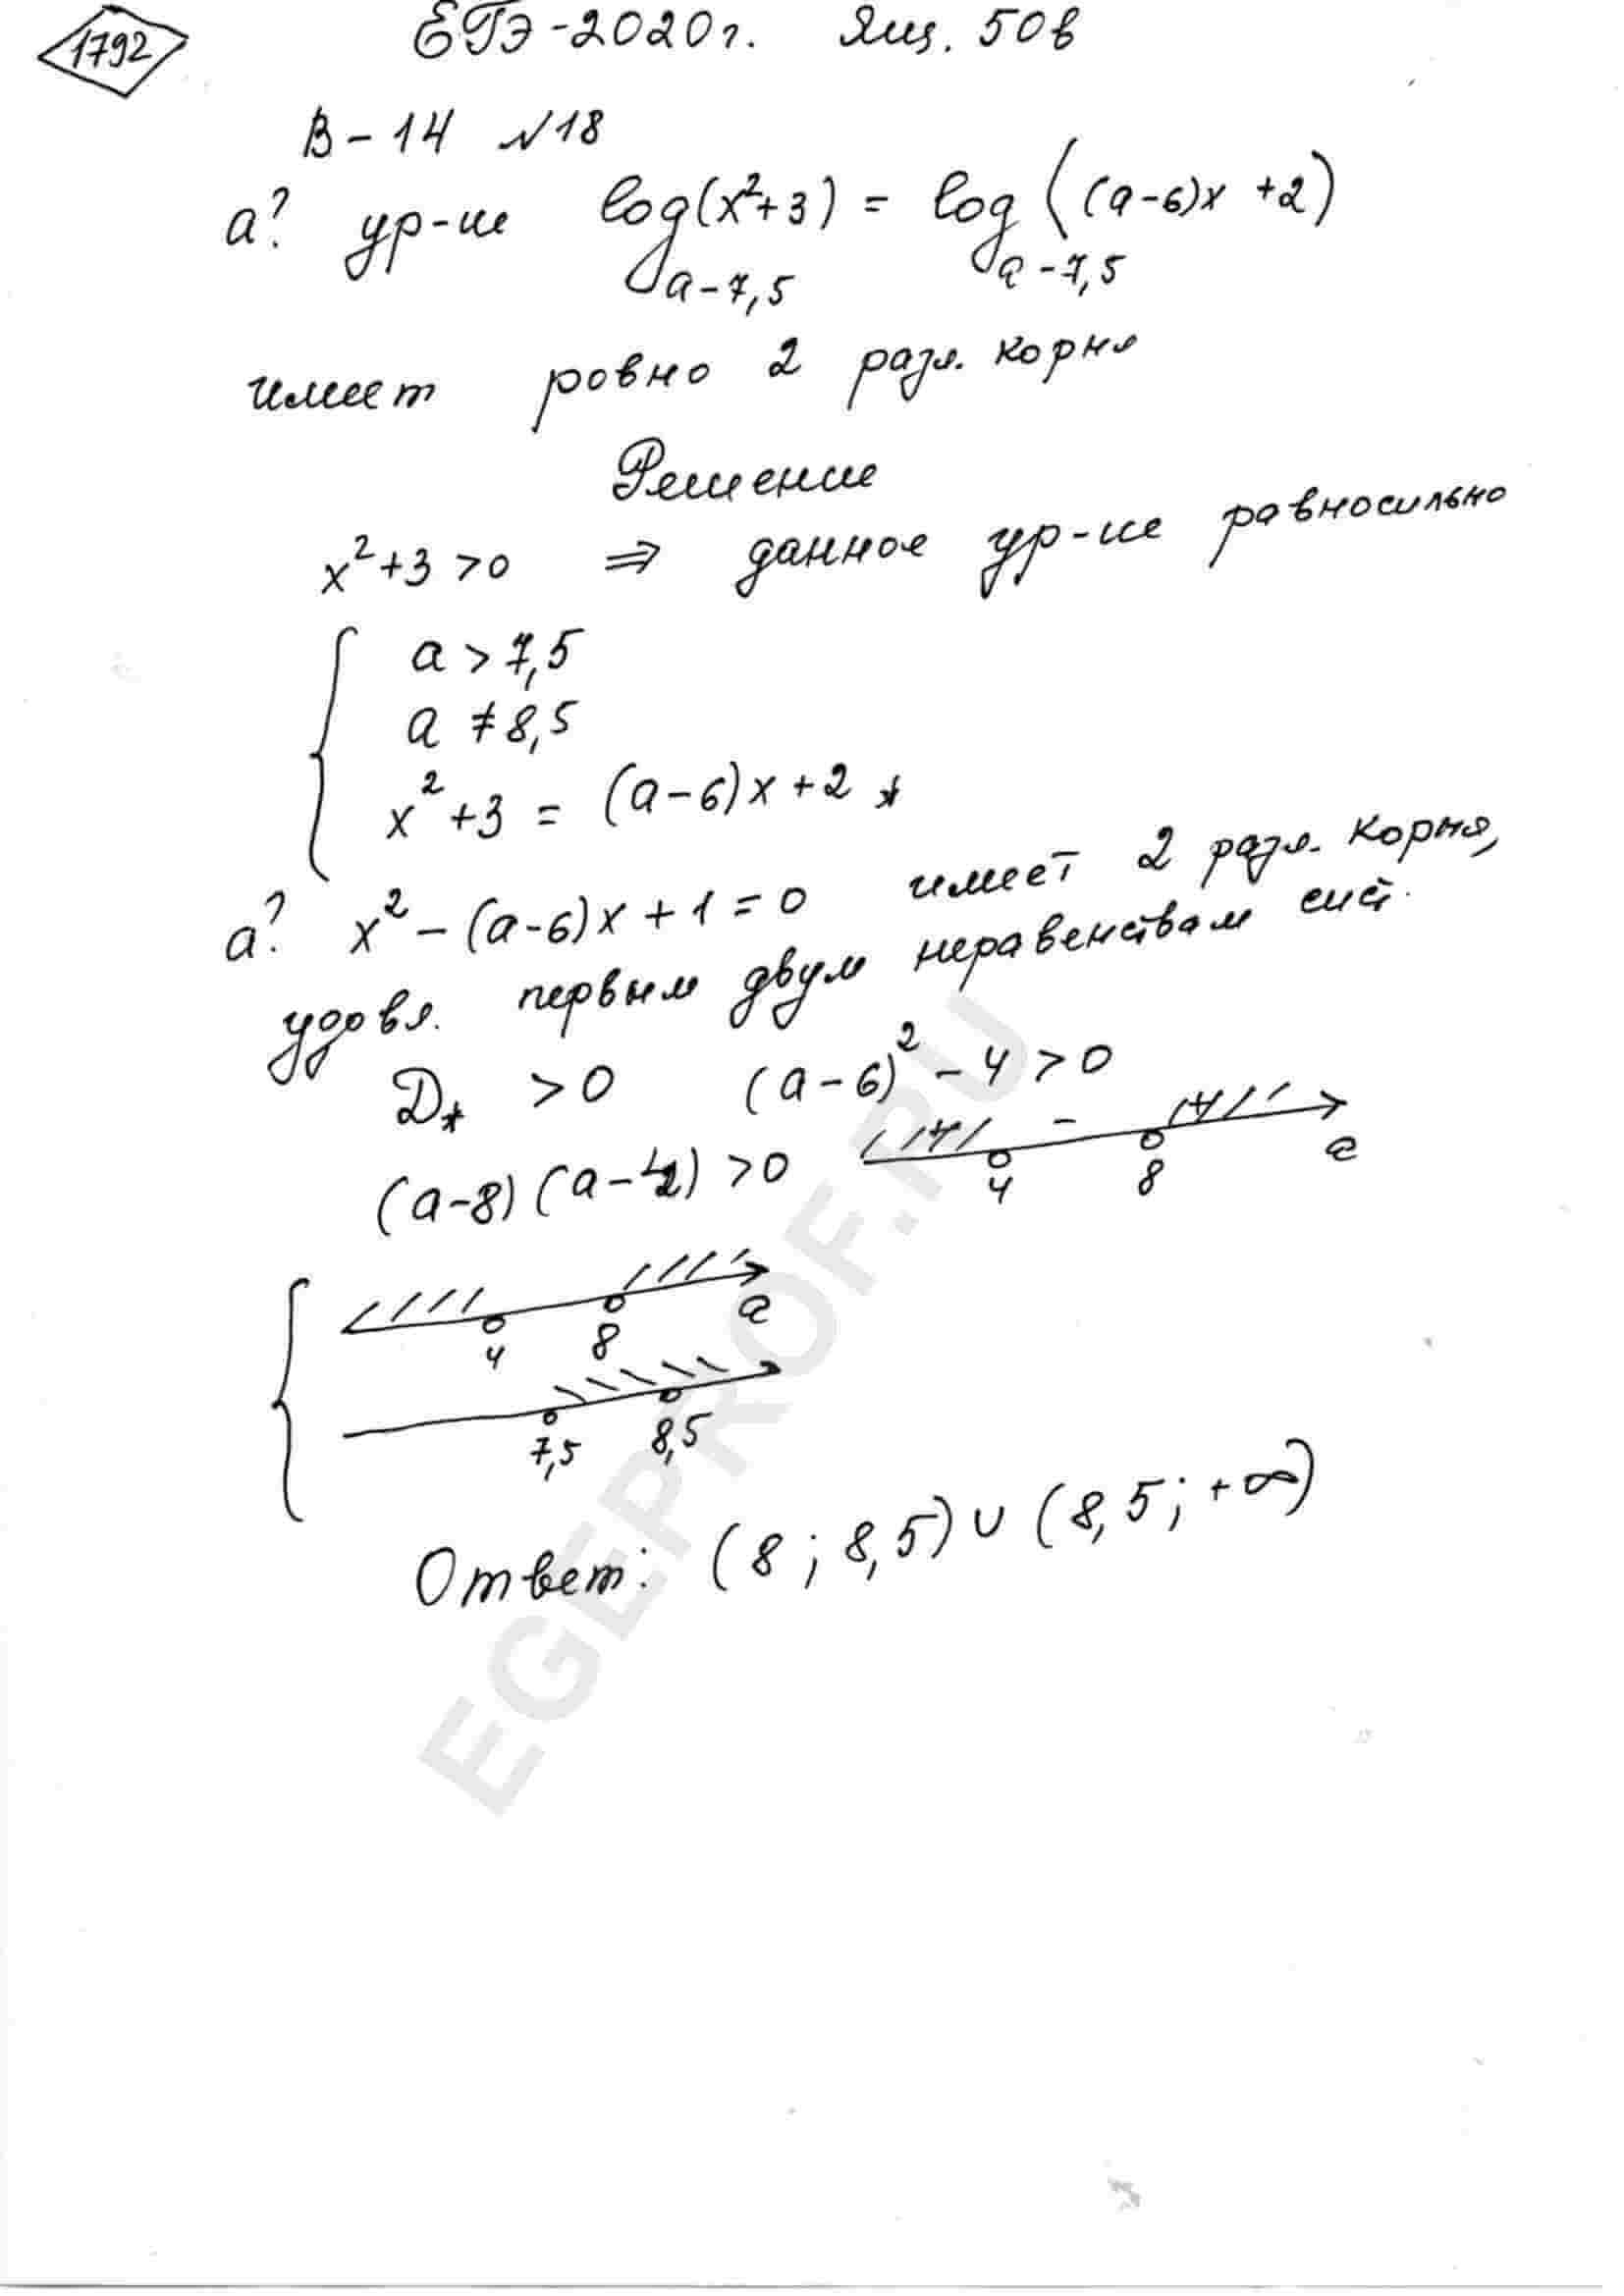 1792
ЕГЭ-2020г. Ящ. 50в
В-14 №18
а? ур-ие log_{a-7,5}(x²+3) = log_{a-7,5}((a-6)x+2)
имеет ровно 2 разл. корня
Решение
x²+3>0 ⇒ данное ур-ие равносильно
a > 7,5
a ≠ 8,5
x²+3 = (a-6)x+2 *
а? x²-(a-6)x+1=0 имеет 2 разл. корня,
удовл. первым двум неравенствам сист.
D* >0 (a-6)²-4>0
(a-8)(a-4)>0 + - + 4 8 a
4 8 a
7,5 8,5
Ответ: (8; 8,5)∪(8,5; +∞)
EGEPROF.RU